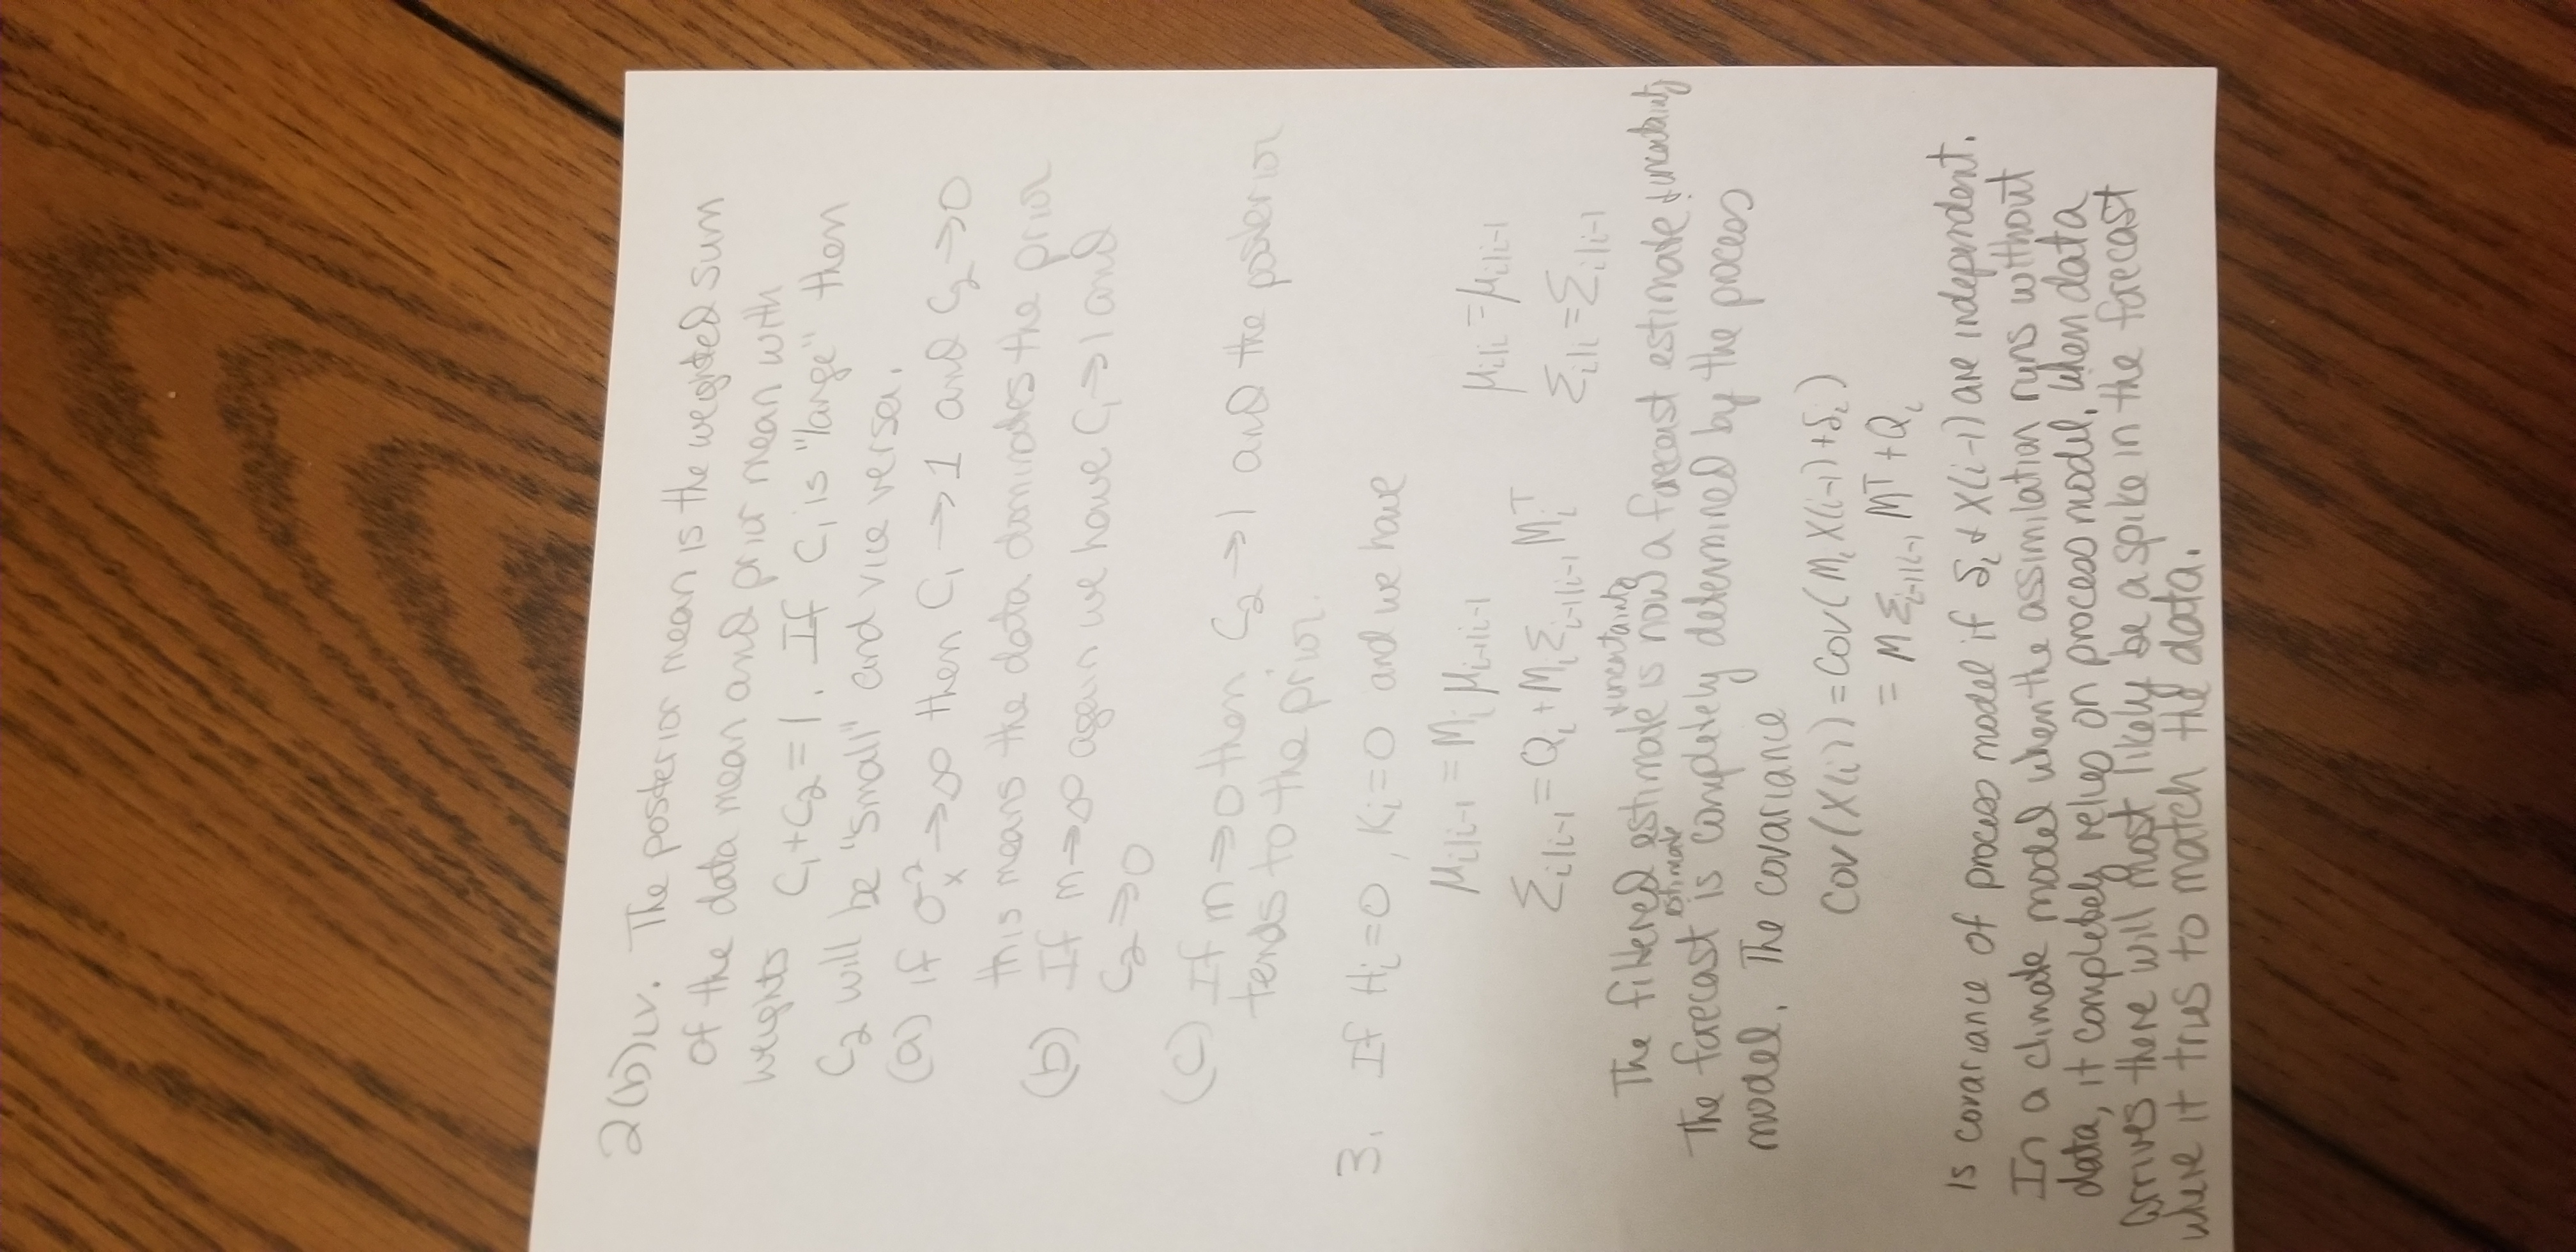 2(b)iv. The posterior mean is the weighted sum
of the data mean and prior mean with
weights C₁+C₂=1. If C₁ is "large" then
C₂ will be "small" and vice versa.
(a) if σₓ²→∞ then C₁→1 and C₂→0
this means the data dominates the prior
(b) If m→∞ again we have C₁→1 and
C₂→0
(c) If m→0 then C₂→1 and the posterior
tends to the prior.
3. If Hᵢ=0, Kᵢ=0 and we have
μᵢ|ᵢ₋₁ = Mᵢ μᵢ₋₁|ᵢ₋₁ μᵢ|ᵢ = μᵢ|ᵢ₋₁
Σᵢ|ᵢ₋₁ = Qᵢ + Mᵢ Σᵢ₋₁|ᵢ₋₁ Mᵢᵀ Σᵢ|ᵢ = Σᵢ|ᵢ₋₁
The filtered estimate + uncertainty is now a forecast estimate + uncertainty
The forecast estimate is completely determined by the process
model. The covariance
Cov(X(i)) = Cov(Mᵢ X(i-1) + δᵢ)
= M Σᵢ₋₁|ᵢ₋₁ Mᵀ + Qᵢ
is covariance of process model if δᵢ + X(i-1) are independent.
In a climate model when the assimilation runs without
data, it completely relies on process model. When data
arrives there will most likely be a spike in the forecast
where it tries to match the data.